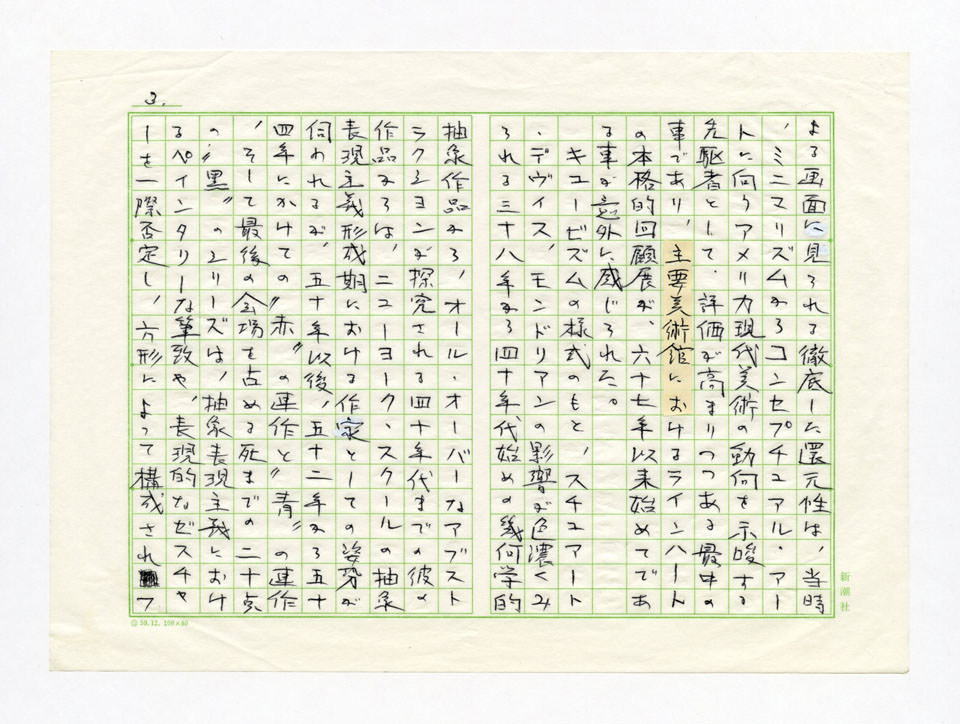 3.
よる画面に見られる徹底した還元性は、当時
、ミニマリズムからコンセプチュアル・アー
トに向うアメリカ現代美術の動向を示唆する
先駆者として、評価が高まりつつある最中の
事であり、主要美術館におけるラインハート
の本格的回顧展が、六十七年以来始めてであ
る事が意外に感じられた。
キュービズムの様式のもと、スチュアート
・デヴィス、モンドリアンの影響が色濃くみ
られる三十八年から四十年代始めの幾何学的
抽象作品から、オール・オーバーなアブスト
ラクションが探究される四十年代までの彼の
作品からは、ニューヨーク・スクールの抽象
表現主義形成期における作家としての姿勢が
伺われるが、五十年以後、五十二年から五十
四年にかけての〝赤〟の連作と〝青〟の連作
、そして最後の会場を占める死までの二十点
の〝黒〟のシリーズは、抽象表現主義におけ
るペインタリーな筆致や、表現的なゼスチャ
ーを一際否定し、方形によって構成されフ
新潮社
50.12. 100×60